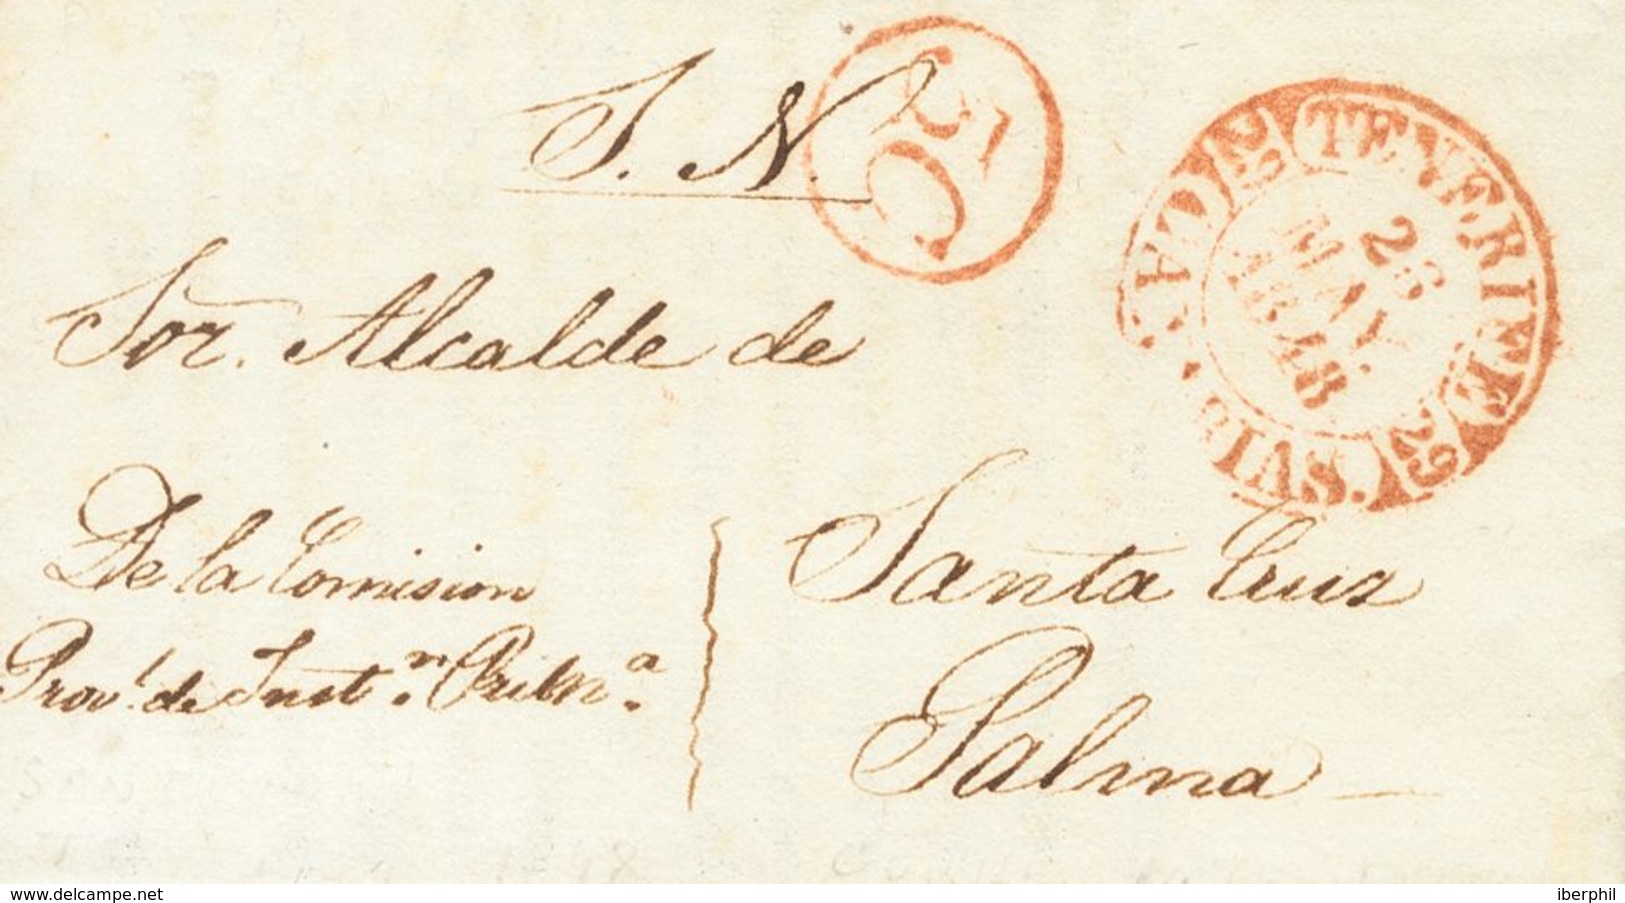 S. N.
5C
TENERIFE 29
28
MAY.
1848
Sor. Alcalde de
De la Comision
Provl. de Instn.
Santa Cruz
Palma
www.delcampe.net
iberphil